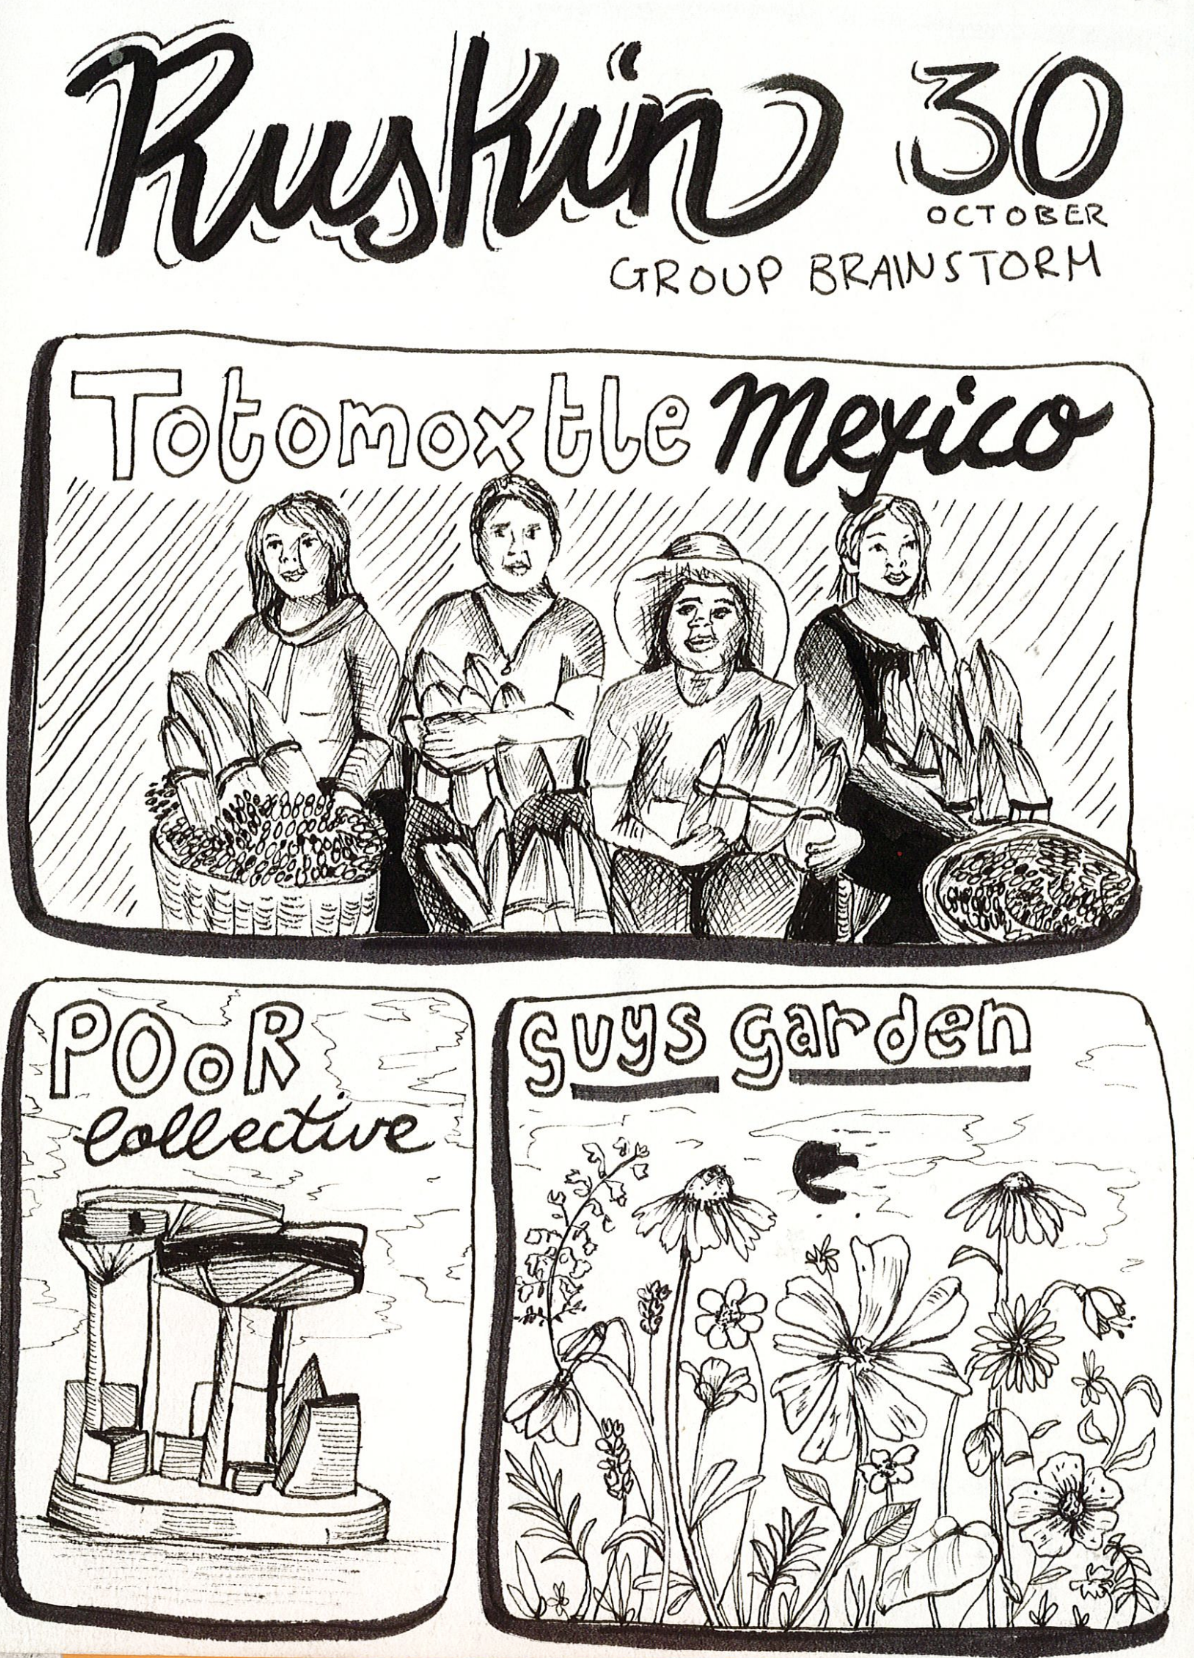 Ruskin 30
OCTOBER
GROUP BRAINSTORM
Totomoxtle Mexico
POoR
collective
guys garden